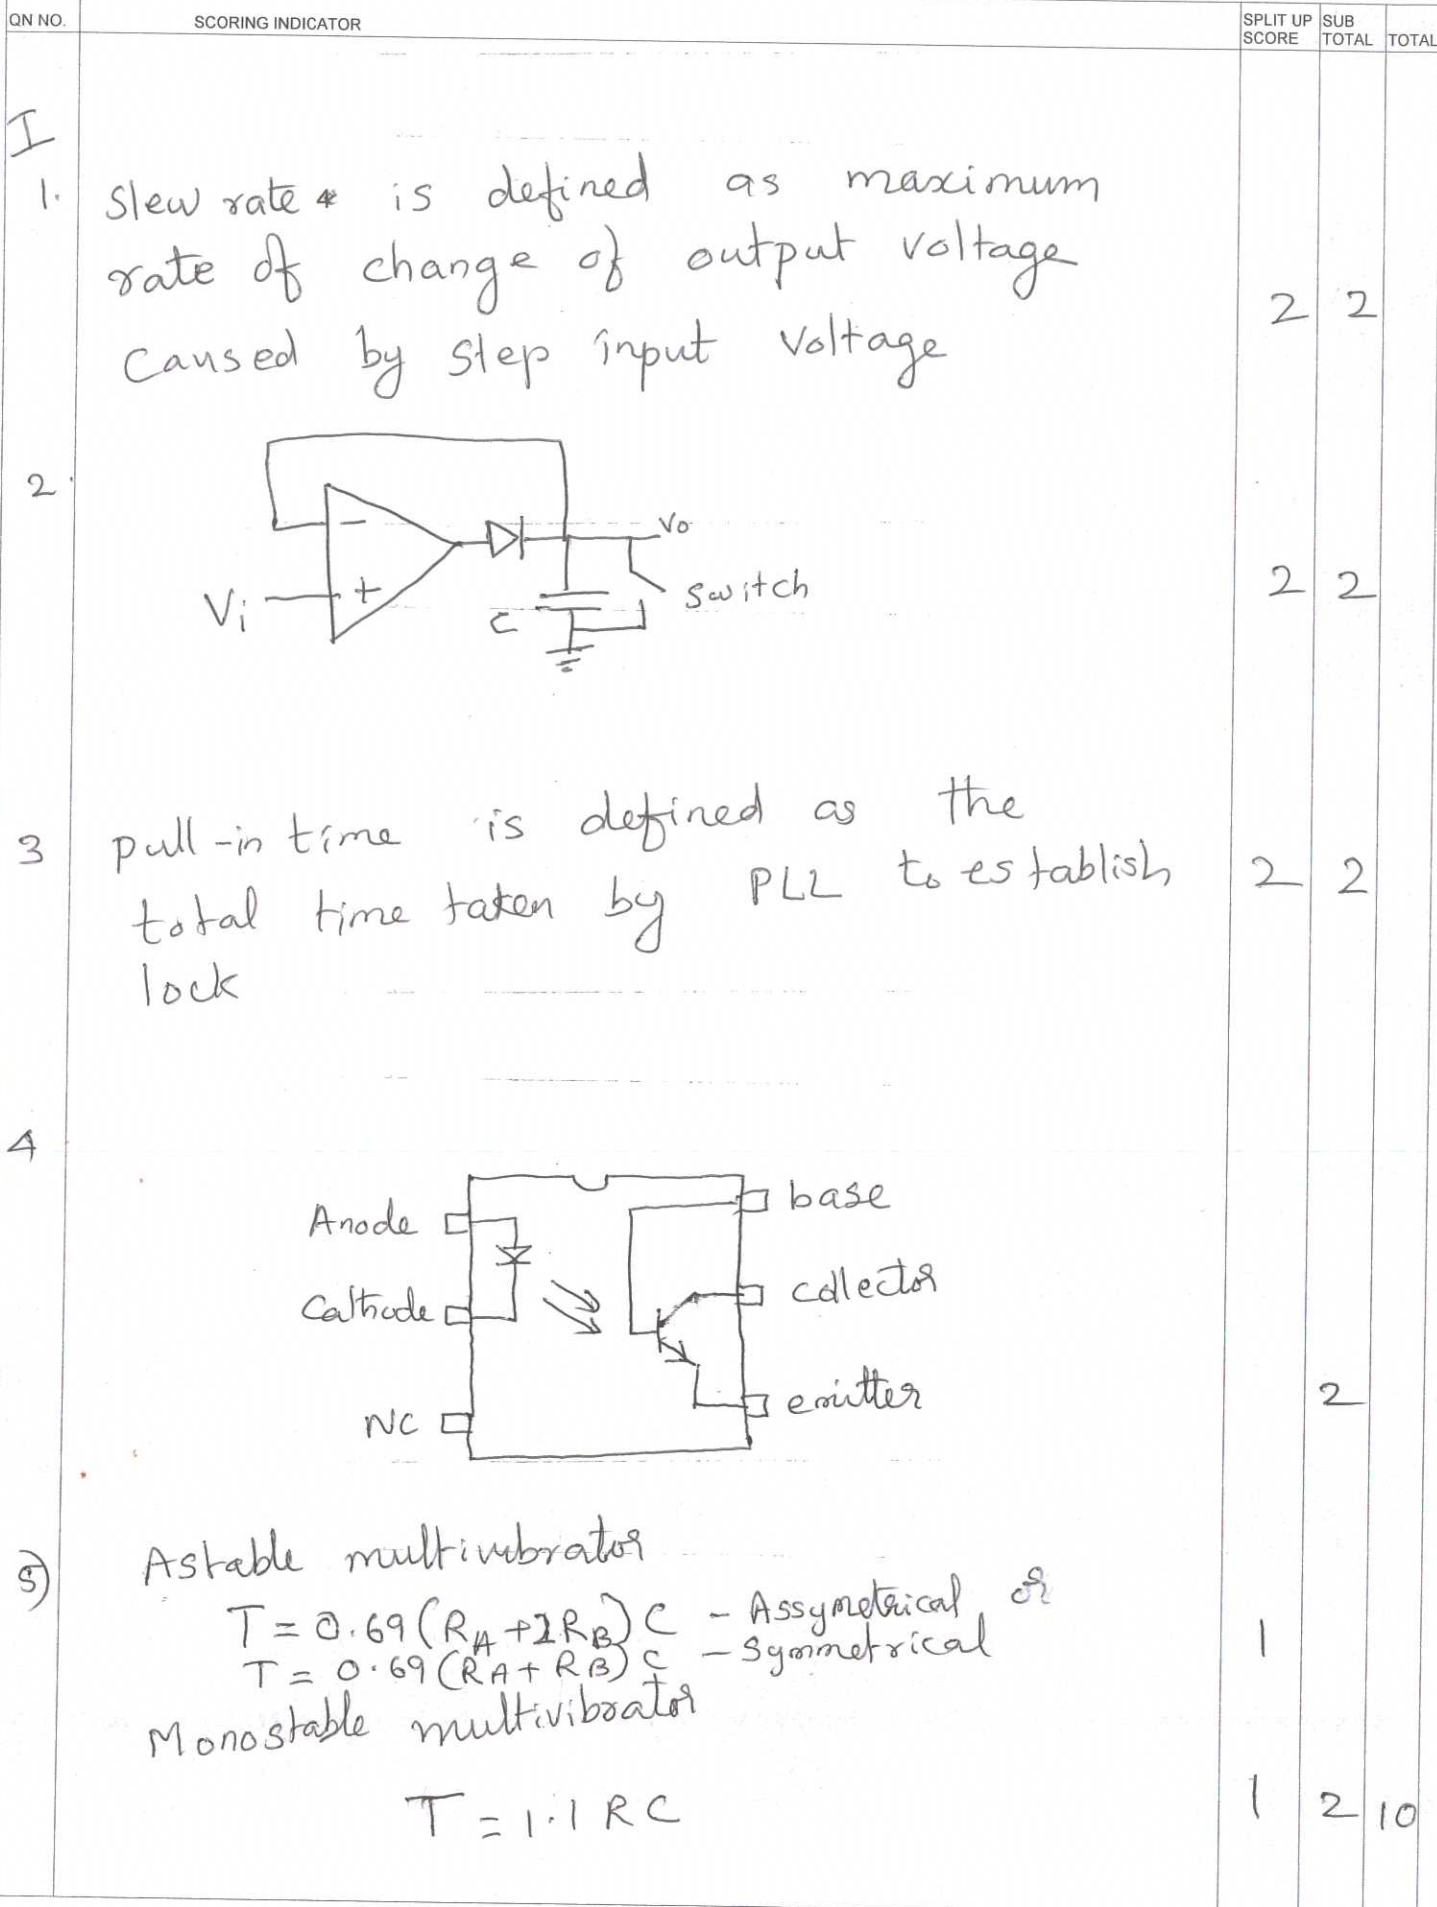 QN NO. SCORING INDICATOR SPLIT UP SCORE SUB TOTAL TOTAL
I
1. Slew rate is defined as maximum
rate of change of output voltage
caused by step input voltage
2 2
2.
Vo
Vi
C
switch
2 2
3 pull-in time is defined as the
total time taken by PLL to establish
lock
2 2
4
Anode
base
Cathode
collector
NC
emitter
2
5) Astable multivibrator
T = 0.69 (RA + 2RB) C - Assymetrical or
T = 0.69 (RA + RB) C - Symmetrical
1
Monostable multivibrator
T = 1.1 RC
1 2 10